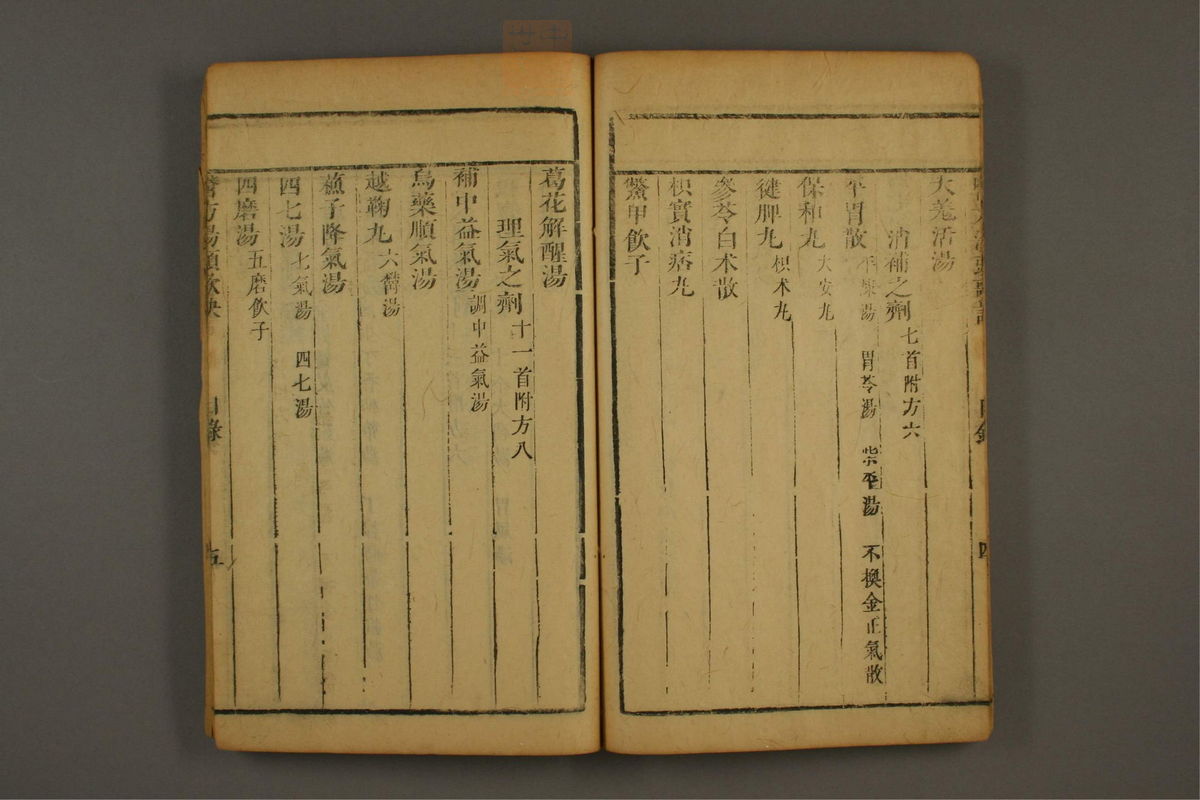 大羗活湯
消補之劑 七首附方六
平胃散 平陳湯 胃苓湯 柴平湯 不換金正氣散
保和丸 大安丸
健脾丸 枳朮丸
參苓白朮散
枳實消痞丸
鱉甲飲子
目錄 四
葛花解酲湯
理氣之劑 十一首附方八
補中益氣湯 調中益氣湯
烏藥順氣湯
越鞠丸 六鬱湯
蘇子降氣湯
四七湯 七氣湯 四七湯
四磨湯 五磨飲子
醫方湯頭歌訣 目錄 五